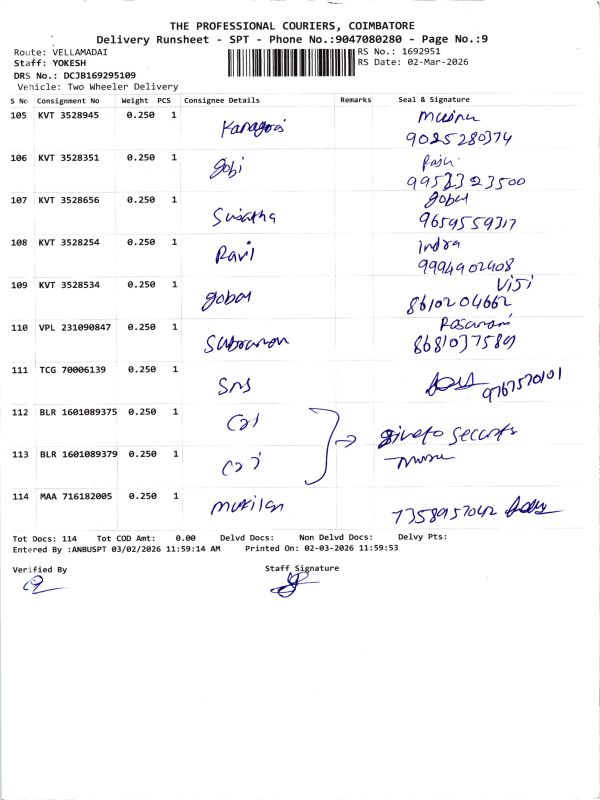 THE PROFESSIONAL COURIERS, COIMBATORE
Delivery Runsheet - SPT - Phone No.:9047080280 - Page No.:9
Route: VELLAMADAI
RS No.: 1692951
Staff: YOKESH
RS Date: 02-Mar-2026
DRS No.: DCJB169295109
Vehicle: Two Wheeler Delivery
S No Consignment No Weight PCS Consignee Details Remarks Seal & Signature
105 KVT 3528945 0.250 1
9025280374
106 KVT 3528351 0.250 1 gobi Raju
9952323500
107 KVT 3528656 0.250 1 Sujatha
9659559317
108 KVT 3528254 0.250 1 Ravi Indra
9994902408
109 KVT 3528534 0.250 1 Viji
8610204662
110 VPL 231090847 0.250 1
8681037589
111 TCG 70006139 0.250 1 SNS 9767570101
112 BLR 1601089375 0.250 1
113 BLR 1601089379 0.250 1
114 MAA 716182005 0.250 1 Mukilan 7358957042
Tot Docs: 114 Tot COD Amt: 0.00 Delvd Docs: Non Delvd Docs: Delvy Pts:
Entered By :ANBUSPT 03/02/2026 11:59:14 AM Printed On: 02-03-2026 11:59:53
Verified By Staff Signature